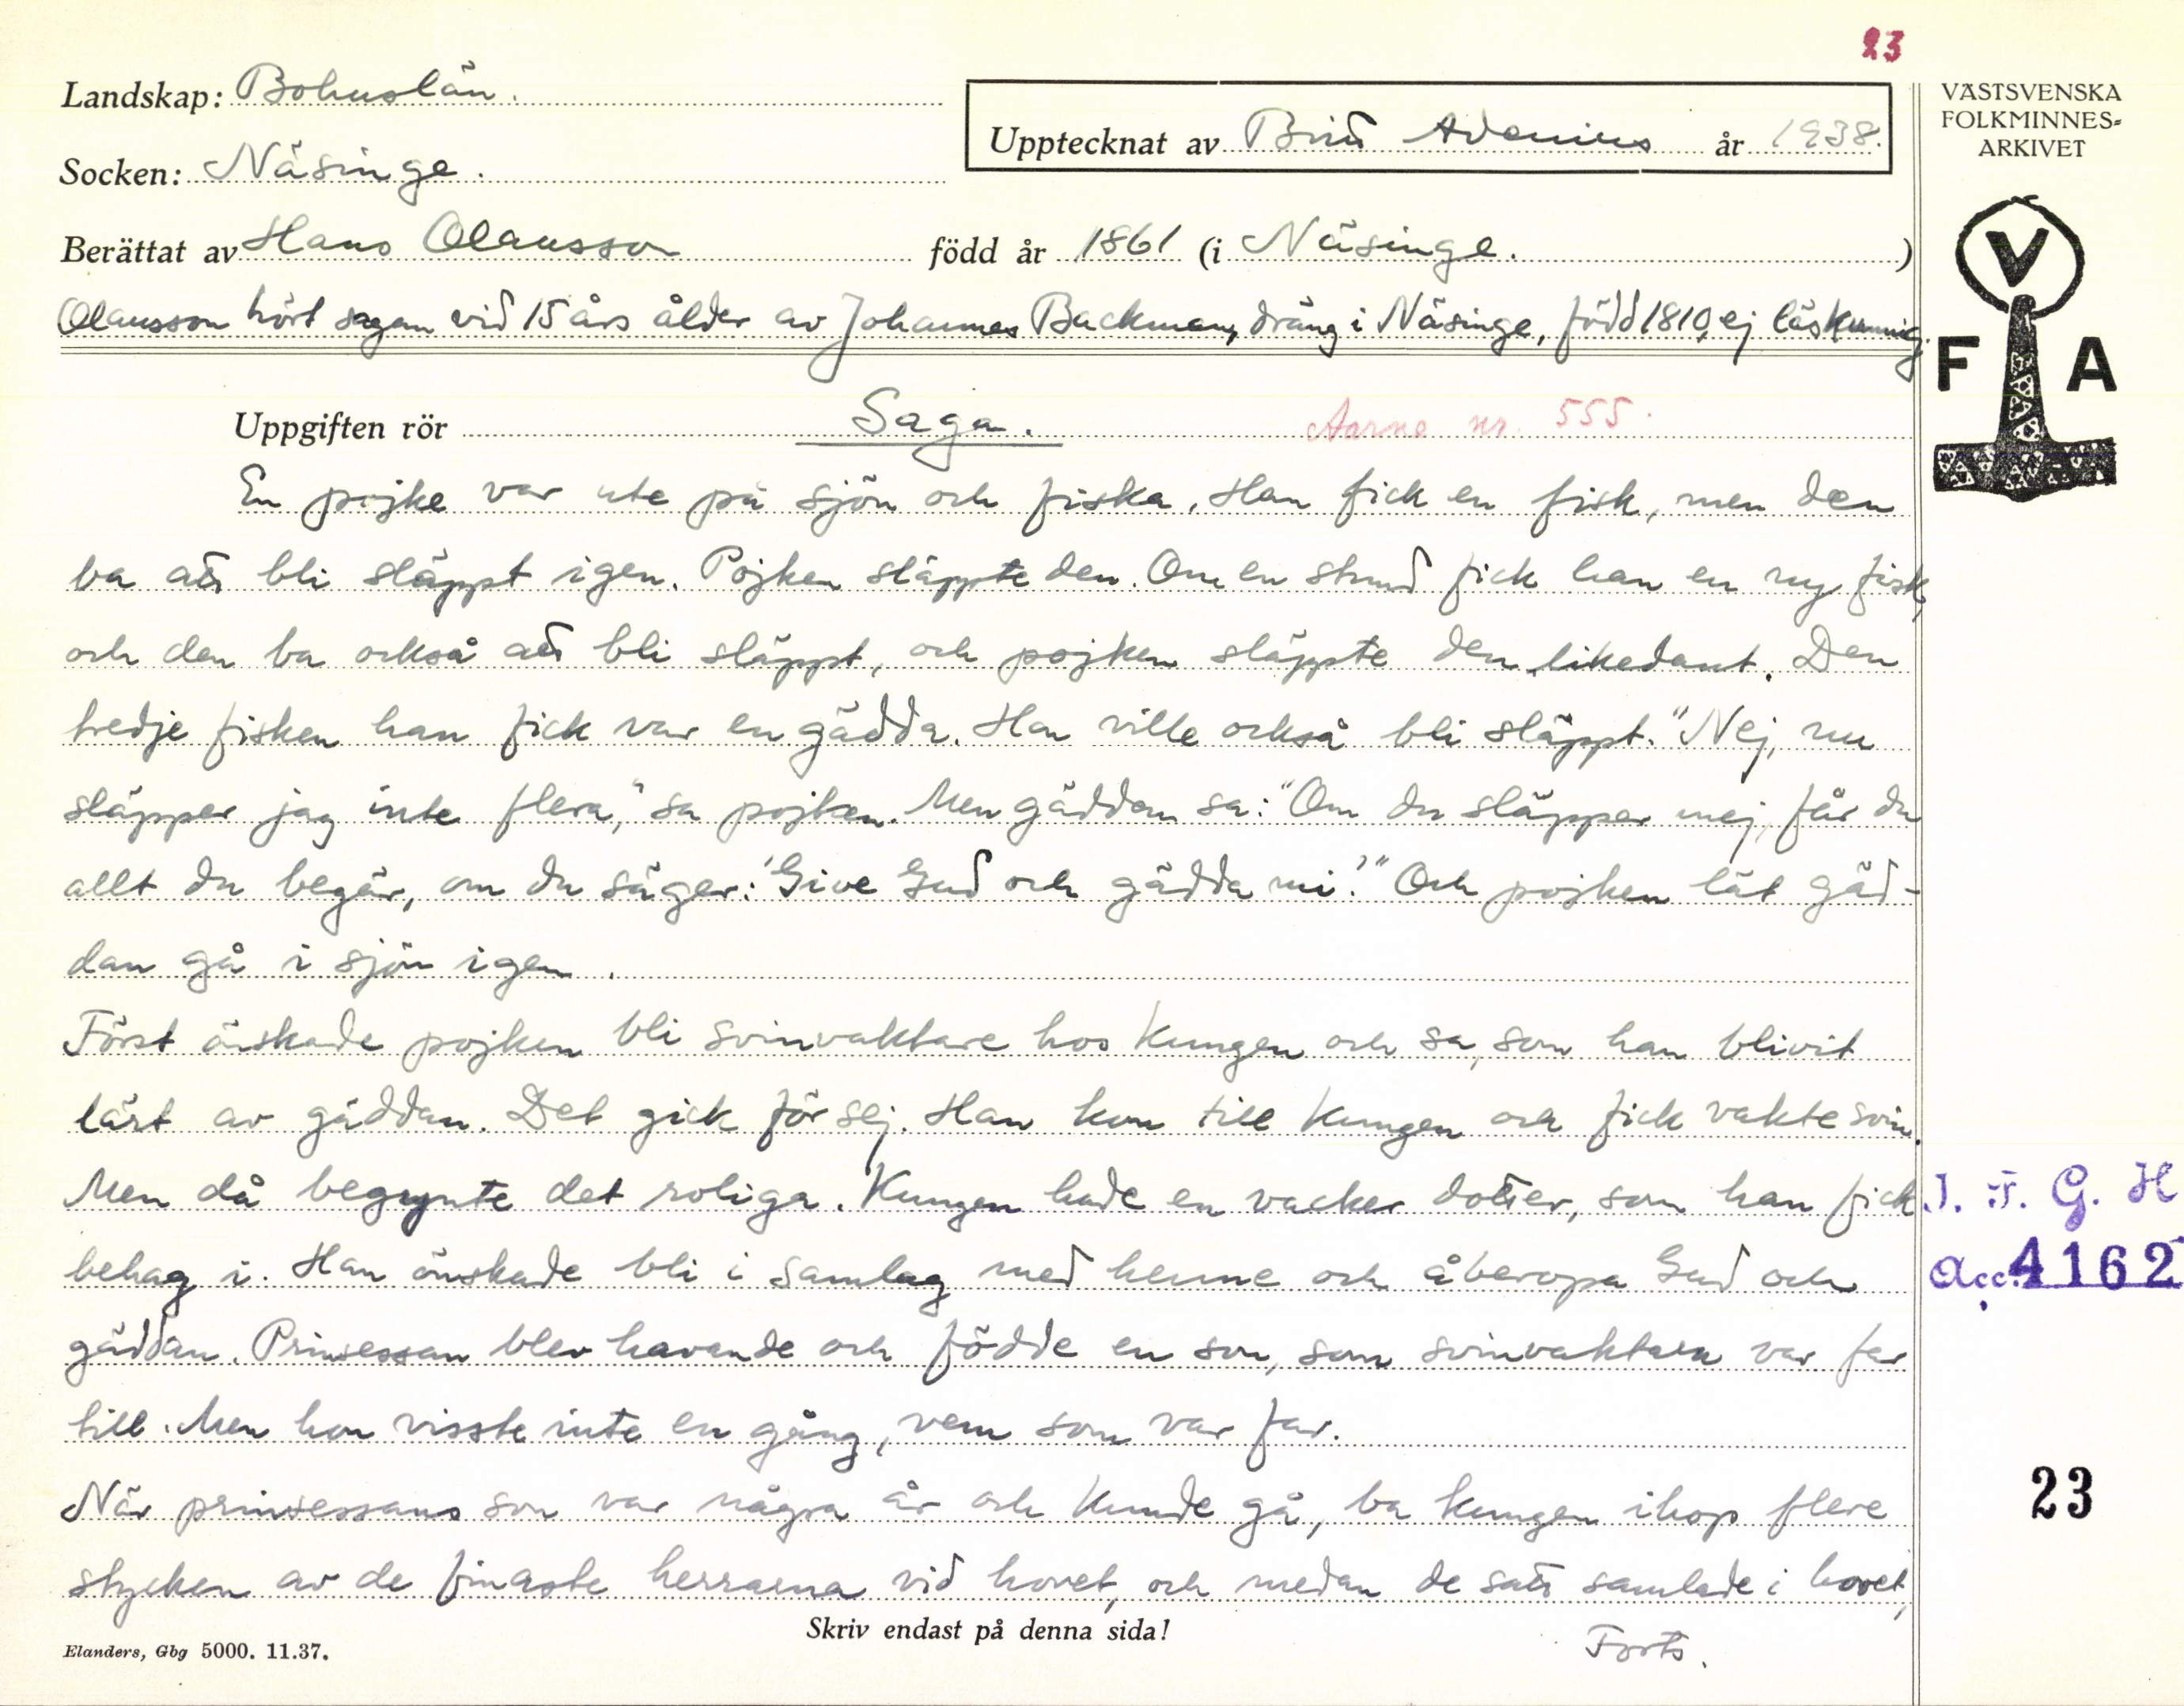 23
Landskap: Bohuslän.
Upptecknat av Britt Adenius år 1938.
VÄSTSVENSKA
FOLKMINNES-
ARKIVET
Socken: Näsinge.
Berättat av Hans Olausson född år 1861 (i Näsinge.)
Olausson hört sagan vid 15 års ålder av Johannes Backman, dräng i Näsinge, född 1810, ej läskunnig.
V
F A
Uppgiften rör Saga. Aarne nr. 555.
En pojke var ute på sjön och fiska. Han fick en fisk, men den
ba att bli släppt igen. Pojken släppte den. Om en stund fick han en ny fisk,
och den ba också att bli släppt, och pojken släppte den likedant. Den
tredje fisken han fick var en gädda. Han ville också bli släppt. "Nej, nu
släpper jag inte flera," sa pojken. Men gäddan sa: "Om du släpper mej, får du
allt du begär, om du säger: 'Give Gud och gädda mi!'" Och pojken lät gäd-
dan gå i sjön igen.
Först önskade pojken bli svinvaktare hos kungen och sa, som han blivit
lärt av gäddan. Det gick för sej. Han kom till kungen och fick vakte svin.
Men då begynte det roliga. Kungen hade en vacker dotter, som han fick
behag i. Han önskade bli i samlag med henne och åberopa Gud och
gäddan. Prinsessan blev havande och födde en son, som svinvaktaren var far
till. Men hon visste inte en gång, vem som var far.
När prinsessans son var några år och kunde gå, ba kungen ihop flere
stycken av de finaste herrarna vid hovet, och medan de satt samlade i hovet,
I. F. G. H
Acc. 4162
23
Skriv endast på denna sida!
Forts.
Elanders, Gbg 5000. 11.37.